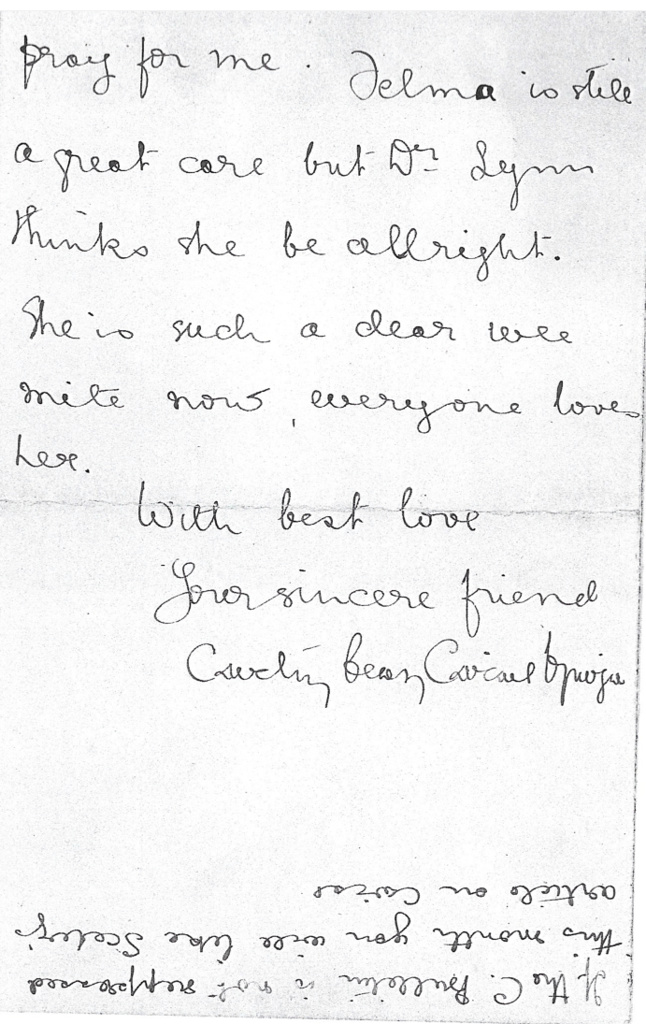 pray for me. Delma is still
a great care but Dr. Lynn
thinks she be allright.
She is such a dear wee
mite now, everyone loves
her.
With best love
Your sincere friend
Caitlín bean Catail Bruga
If the C. Bulletin is not suppressed
this month you will like Sceilg's
article on Catal